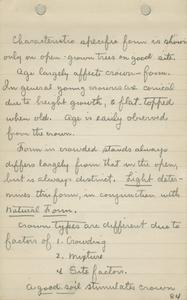 Characteristic specific form is shown
only on open-grown trees on good site.
Age largely affect crown-form.
In general young crowns are conical
due to height growth, & flat topped
when old. Age is easily observed
from the crown.
Form in crowded stands always
differs largely from that in the open,
but is always distinct. Light deter-
mines this form, in conjunction with
Natural Form.
Crown types are different due to
factors of 1. Crowding
2. Mixture
4 Site factors.
A good soil stimulates crown